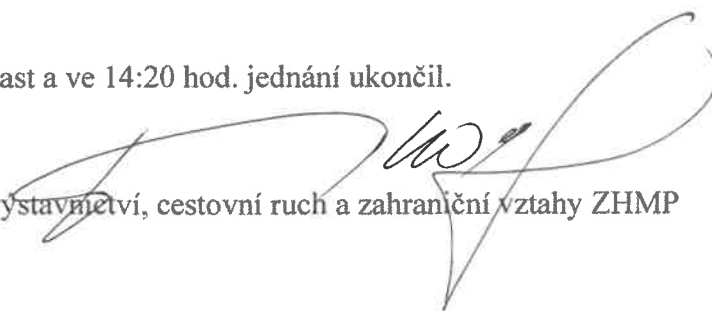 ast a ve 14:20 hod. jednání ukončil.
ýstavnictví, cestovní ruch a zahraniční vztahy ZHMP